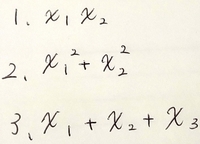 1. x₁ x₂
2. x₁² + x₂²
3. x₁ + x₂ + x₃